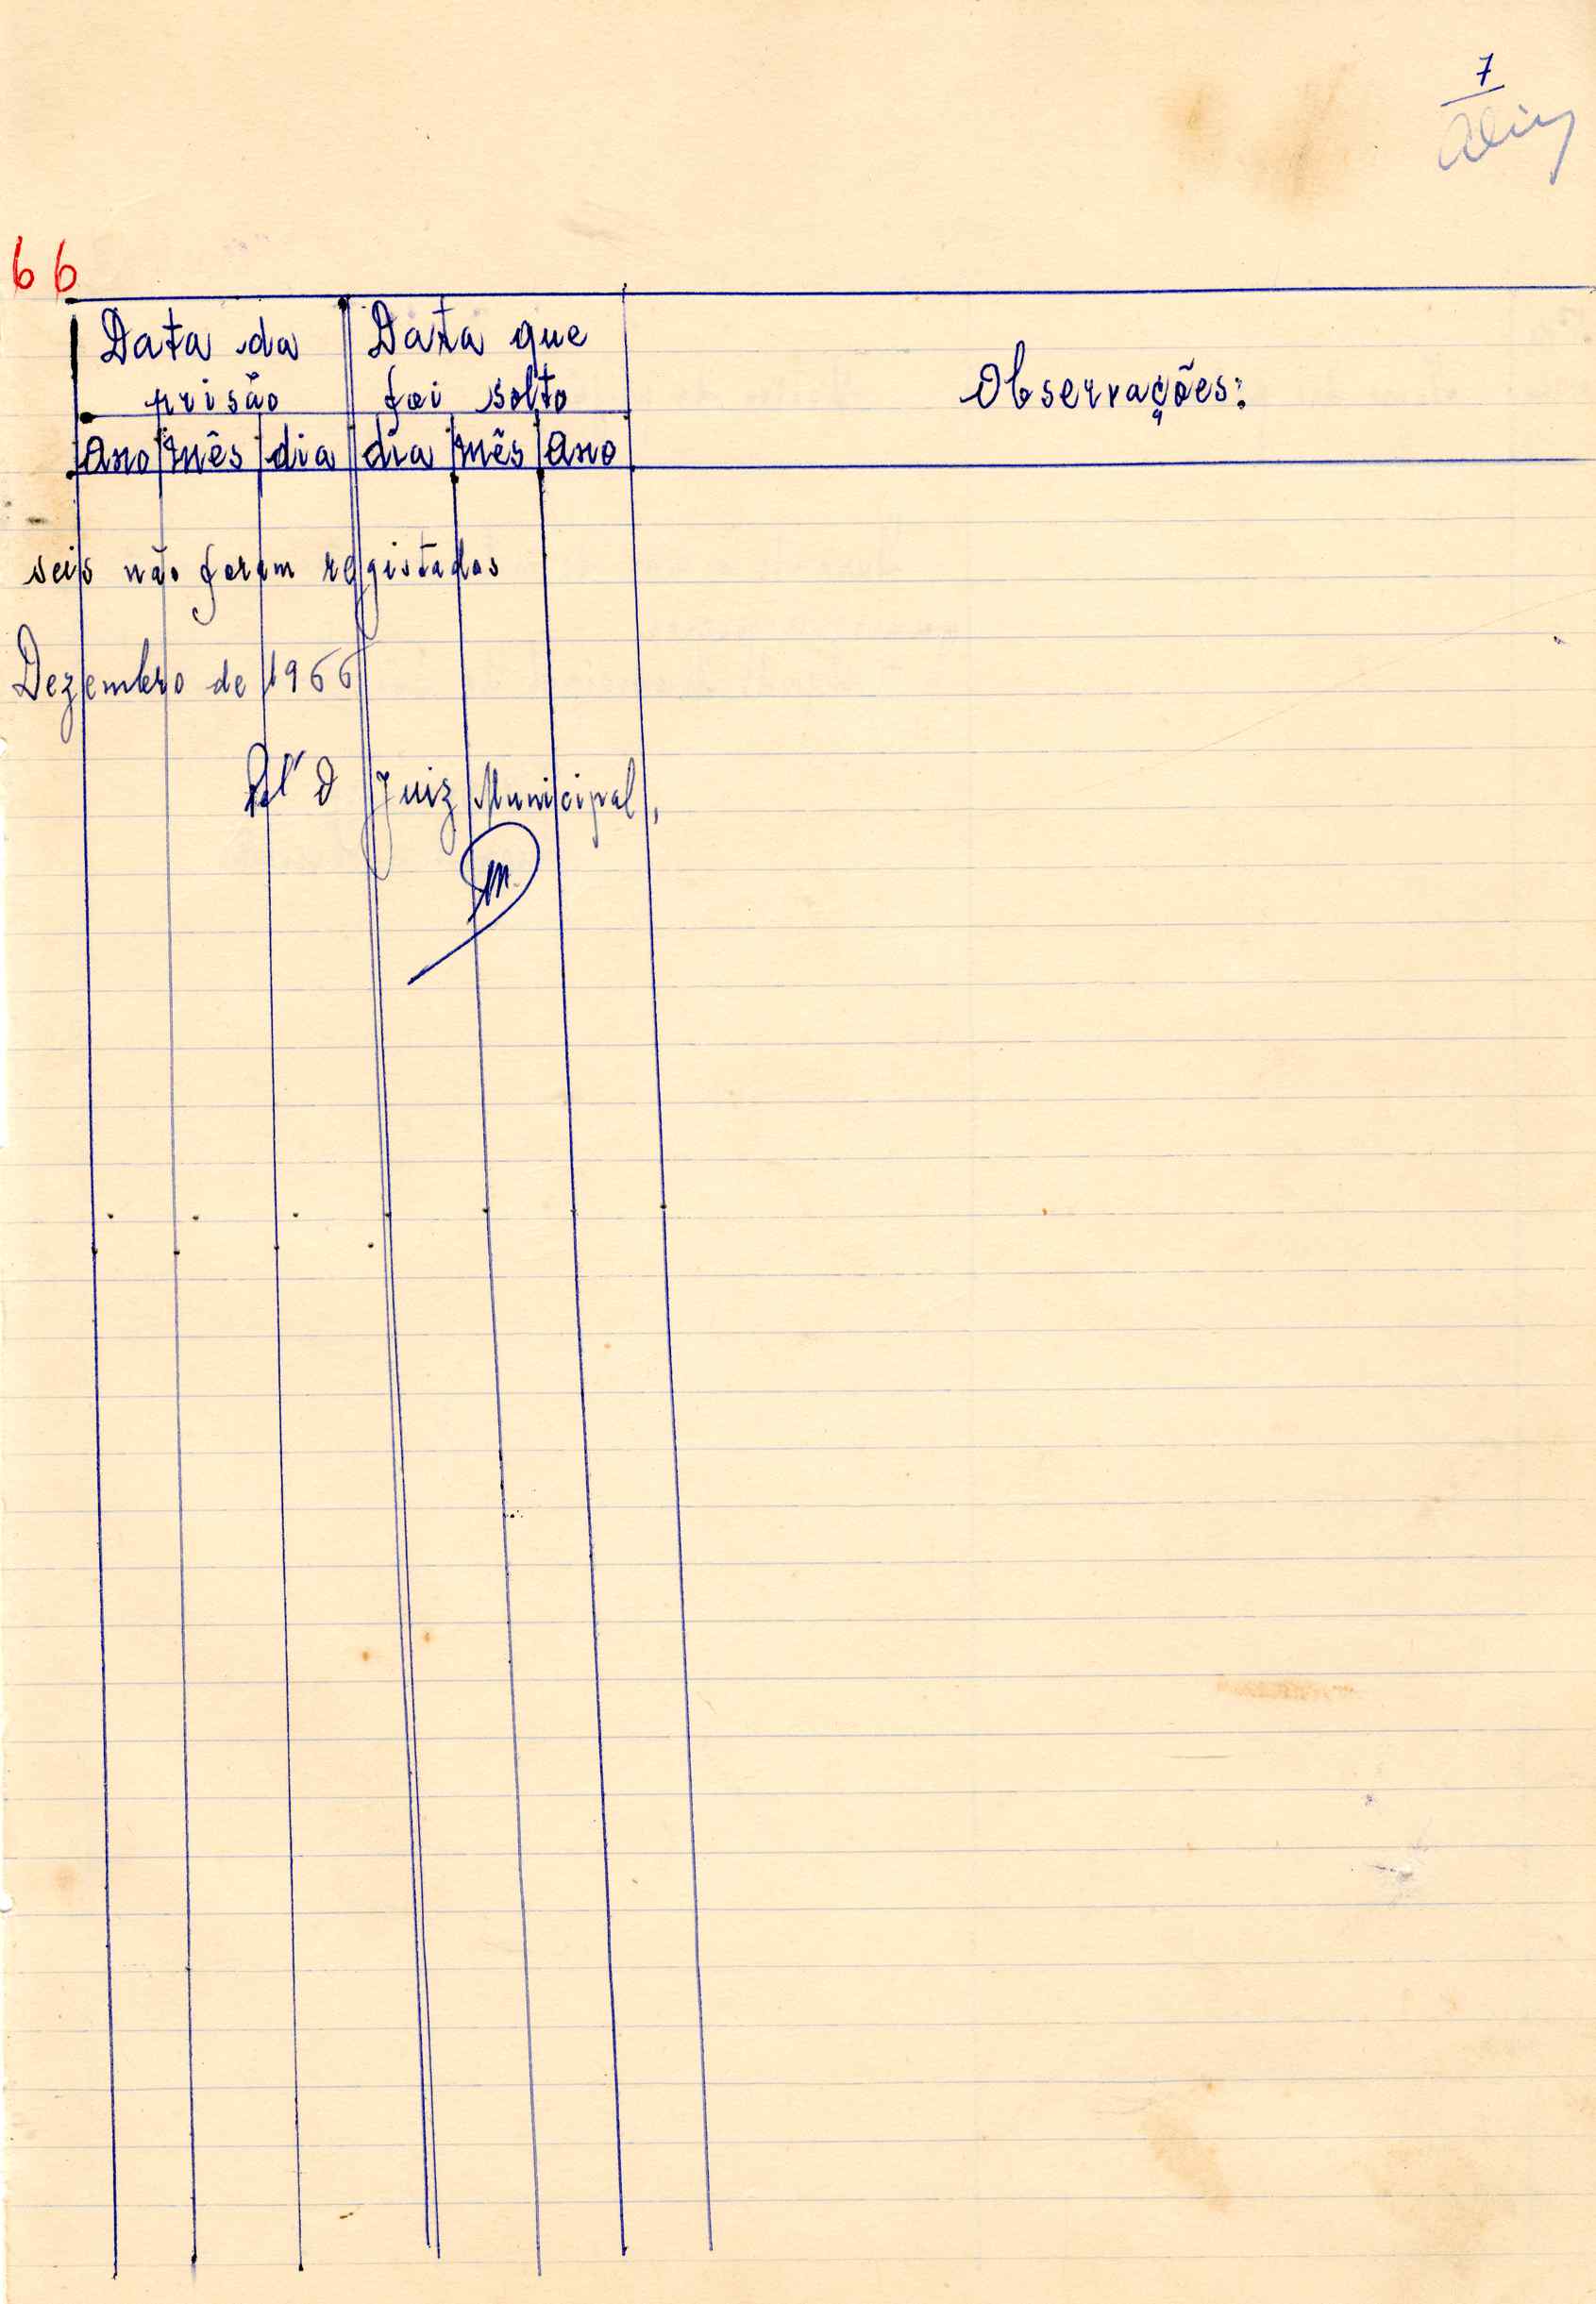 7
66
Data da prisão
Data que foi solto
Observações:
Ano mês dia dia mês Ano
seis não foram registados
Dezembro de 1966
O Juiz Municipal,